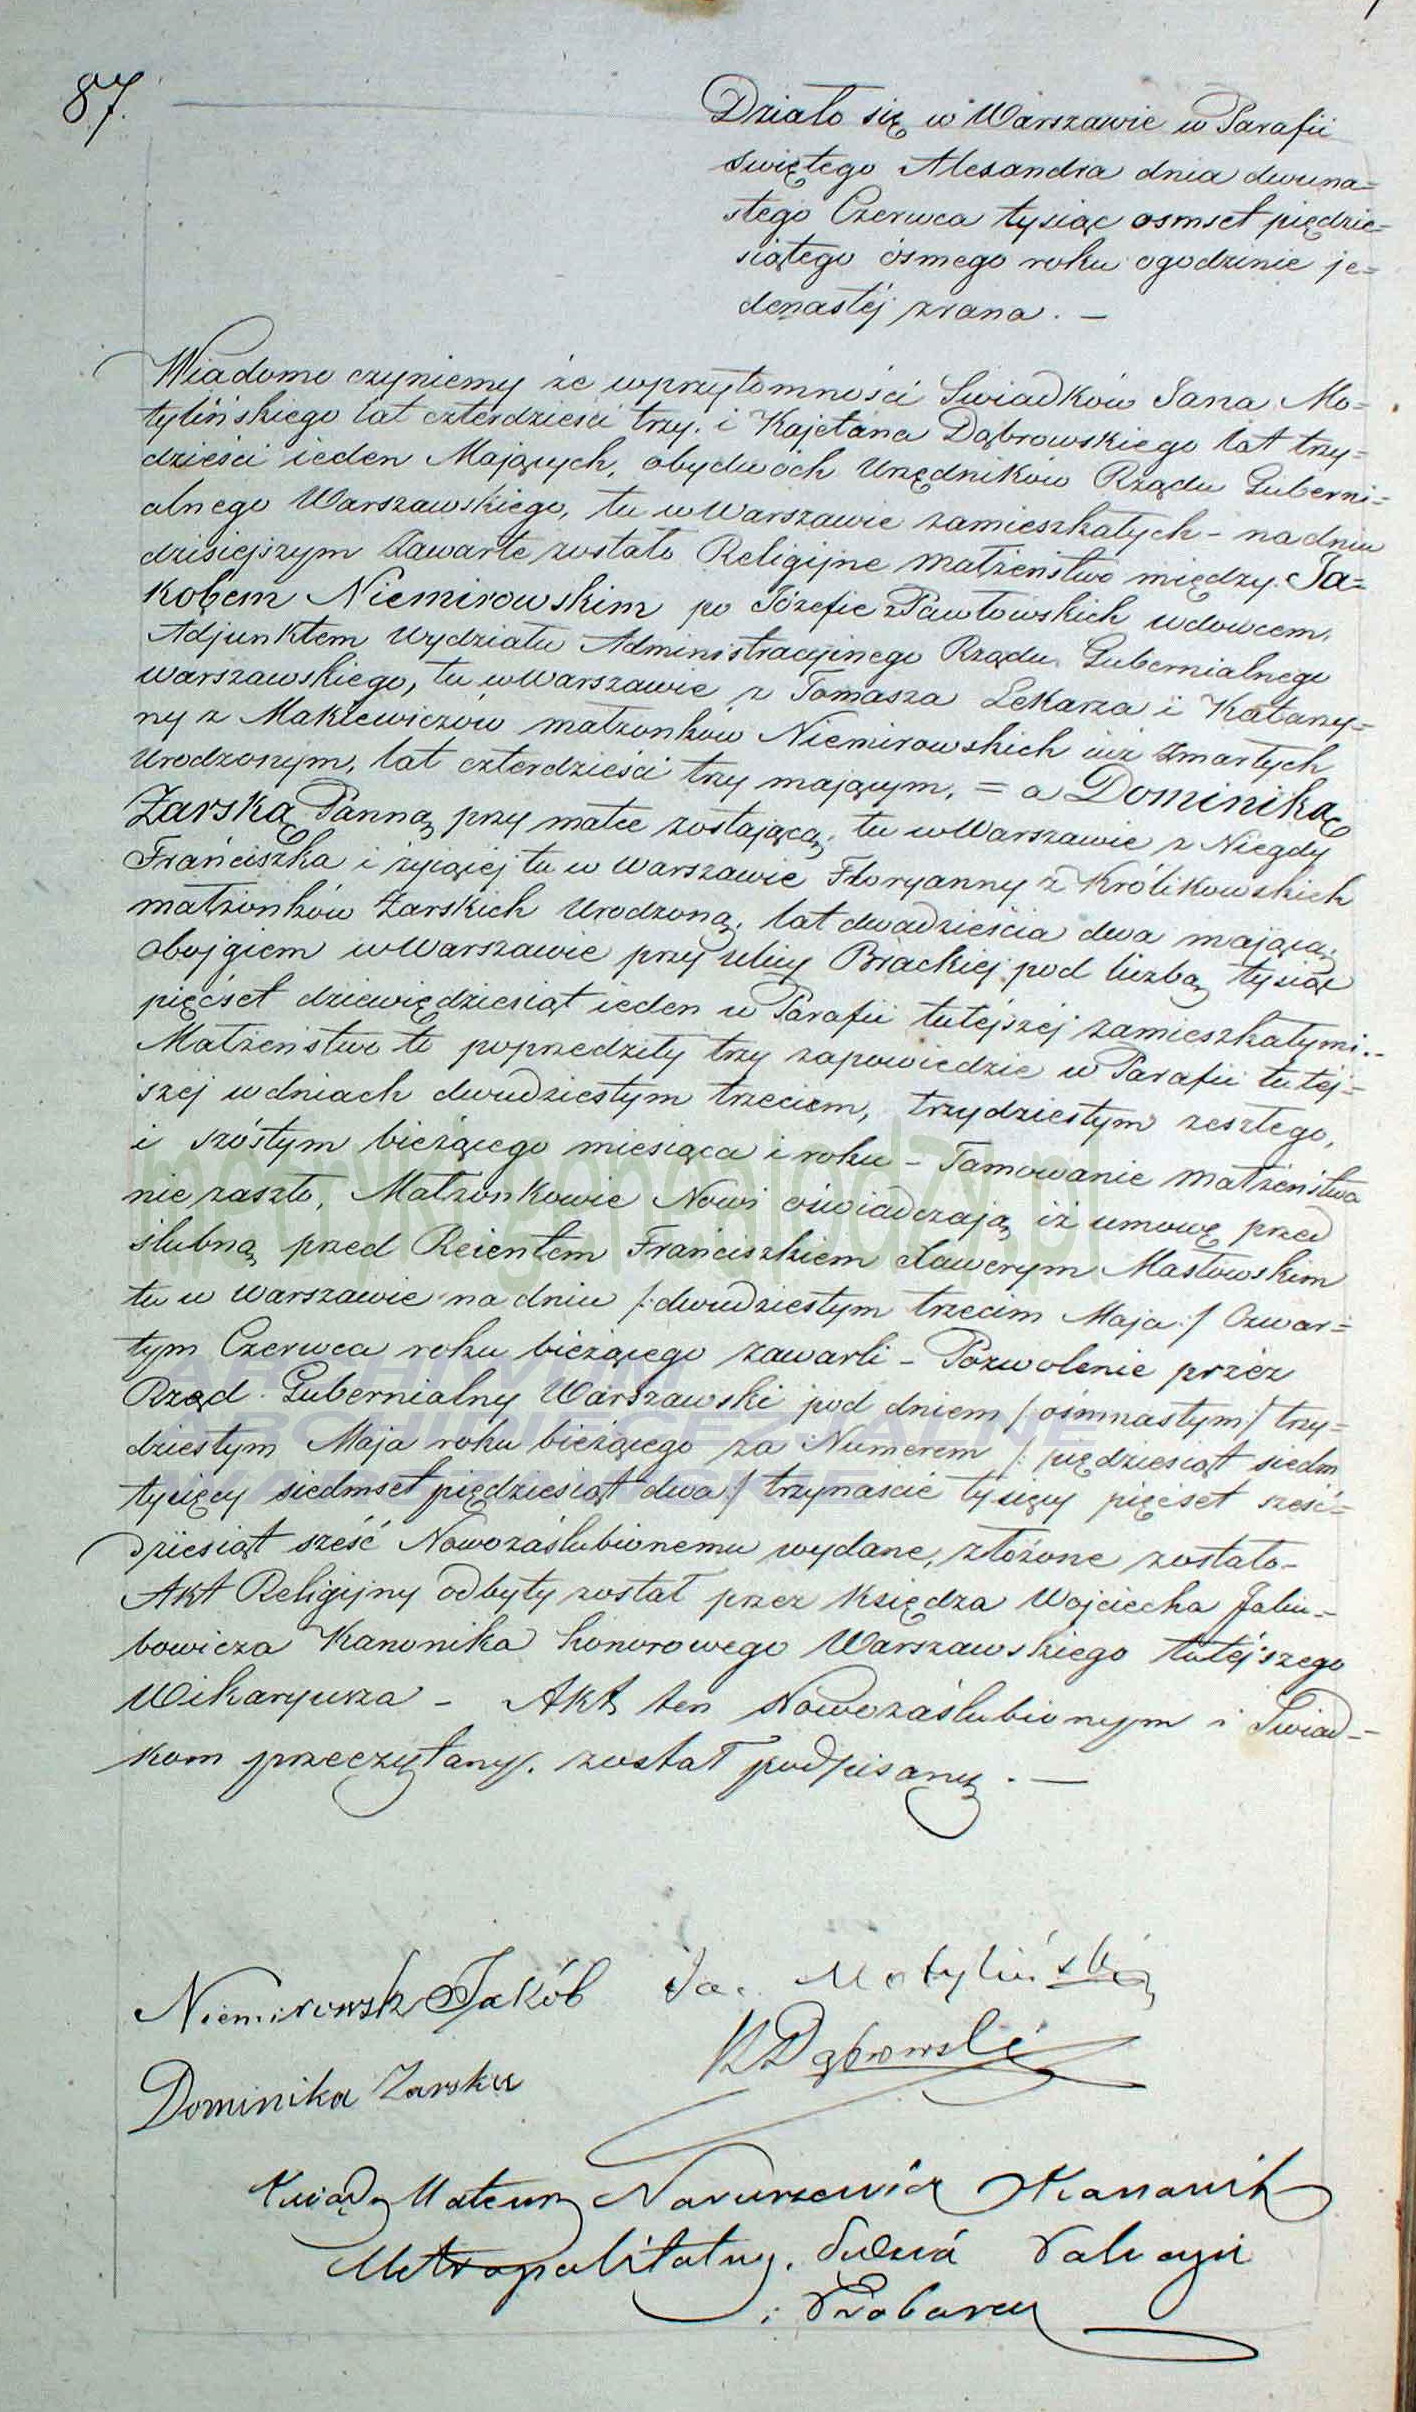 87.
Działo się w Warszawie w Parafii
świętego Alexandra dnia dwuna=
stego Czerwca tysiąc osmset pięćdzie=
siątego ósmego roku ogodzinie je=
denastej zrana. —
Wiadomo czyniemy że wprzytomności Swiadków Jana Mo=
tylińskiego lat czterdzieści trzy. i Kajetana Dąbrowskiego lat trzy=
dzieści ieden Mających, obydwóch Urzędników Rządu Guberni=
alnego Warszawskiego, tu w Warszawie zamieszkałych – na dniu
dzisiejszym Zawarte zostało Religijne małżeństwo między. Ja=
kobem Niemirowskim po Józefie z Pawłowskich wdowcem,
Adjunktem Wydziału Administracyjnego Rządu Gubernialnego
warszawskiego, tu w Warszawie z Tomasza Lekarza i Katarzy=
ny z Makiewiczów małżonków Niemirowskich iuż Zmarłych
Urodzonym, lat czterdzieści trzy mającym, = a Dominiką
Żarską Panną przy matce zostającą, tu w Warszawie z Niegdy
Franciszka i żyiącej tu w Warszawie Floryanny z Królikowskich
małżonków Żarskich Urodzoną, lat dwadzieścia dwa mającą,
obojgiem w Warszawie przy ulicy Brackiej pod liczbą tysiąc
pięćset dziewięćdziesiąt ieden w Parafii tutejszej zamieszkałymi. –
Małżeństwo to poprzedziły trzy zapowiedzie w Parafii tutej=
szej w dniach dwudziestym trzeciem, trzydziestym zeszłego,
i szóstym bieżącego miesiąca i roku – Tamowanie małżeństwa
nie zaszło, Małżonkowie Nowi oświadczają iż umowę przed
ślubną przed Reientem Franciszkiem Xawerym Masłowskim
tu w Warszawie na dniu /: dwudziestym trzecim Maja :/ Czwar=
tym Czerwca roku bieżącego zawarli – Pozwolenie przez
Rząd Gubernialny Warszawski pod dniem /: ośmnastym :/ trzy=
dziestym Maja roku bieżącego za Numerem /: pięćdziesiąt siedm
tysięcy siedmset pięćdziesiąt dwa :/ trzynaście tysięcy pięćset sześć=
dziesiąt sześć Nowozaślubionemu wydane, złożone zostało –
Akt Religijny odbyty został przez Księdza Wojciecha Jaku=
bowicza Kanonika honorowego Warszawskiego tutejszego
Wikaryusza – Akt ten Nowozaślubionym i Swiad=
kom przeczytany. został podpisany. —
Niemirowski Jakób
Motyliński
K Dąbrowski
Dominika Żarska
Ksiądz Mateusz Kanonik
Metropolitalny. Sędzia
i Proboszcz
metryki.genealodzy.pl
ARCHIWUM
ARCHIDIECEZJALNE
WARSZAWSKIE